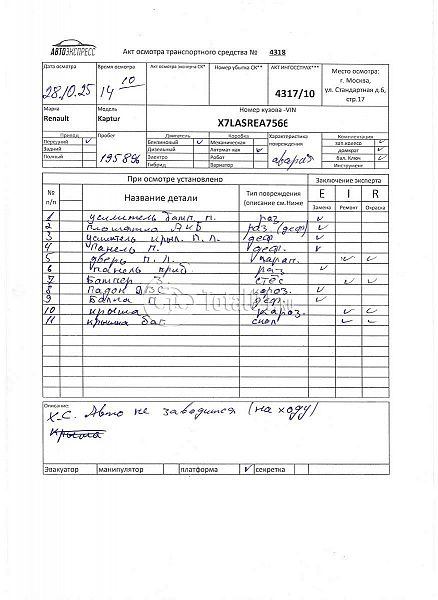 АВТОЭКСПРЕСС
Акт осмотра транспортного средства № 4318
Дата осмотра Время осмотра Акт осмотра эксперта СК* Номер убытка СК** АКТ ИНГОССТРАХ*** Место осмотра:
28.10.25 14 10 4317/10 г. Москва,
ул. Стандартная д.6,
стр.17
Марка Модель Номер кузова -VIN
Renault Kaptur X7LASREA7566
Привод Пробег Двигатель Коробка Характеристика повреждения Комплектация
Передний ✓ 195896 Бензиновый ✓ Механическая авария зап.колесо ✓
Задний Дизельный Автомат ная ✓ домкрат ✓
Полный Электро Робот бал. Ключ ✓
Гибрид Вариатор Инструмент
При осмотре установлено Заключение эксперта
№ п/п Название детали Тип повреждения (описание см.Ниже E I R
Замена Ремонт Окраска
1 усилитель бамп. п. раз ✓
2 площадка АКБ раз. (деф) ✓
3 усилитель крыл. П. Л. деф ✓
4 Панель П. деф. ✓
5 дверь П. Л. царап. ✓ ✓
6 панель приб. раз ✓
7 Бампер З. стёс ✓ ✓
8 короз. ✓
9 Балка П. деф. ✓
10 крыша короз. ✓ ✓
11 крышка баг. скол ✓ ✓
Total
Описание:
Х-С. Авто не заводится (на ходу)
Крыша
Эвакуатор манипулятор платформа ✓ секретка